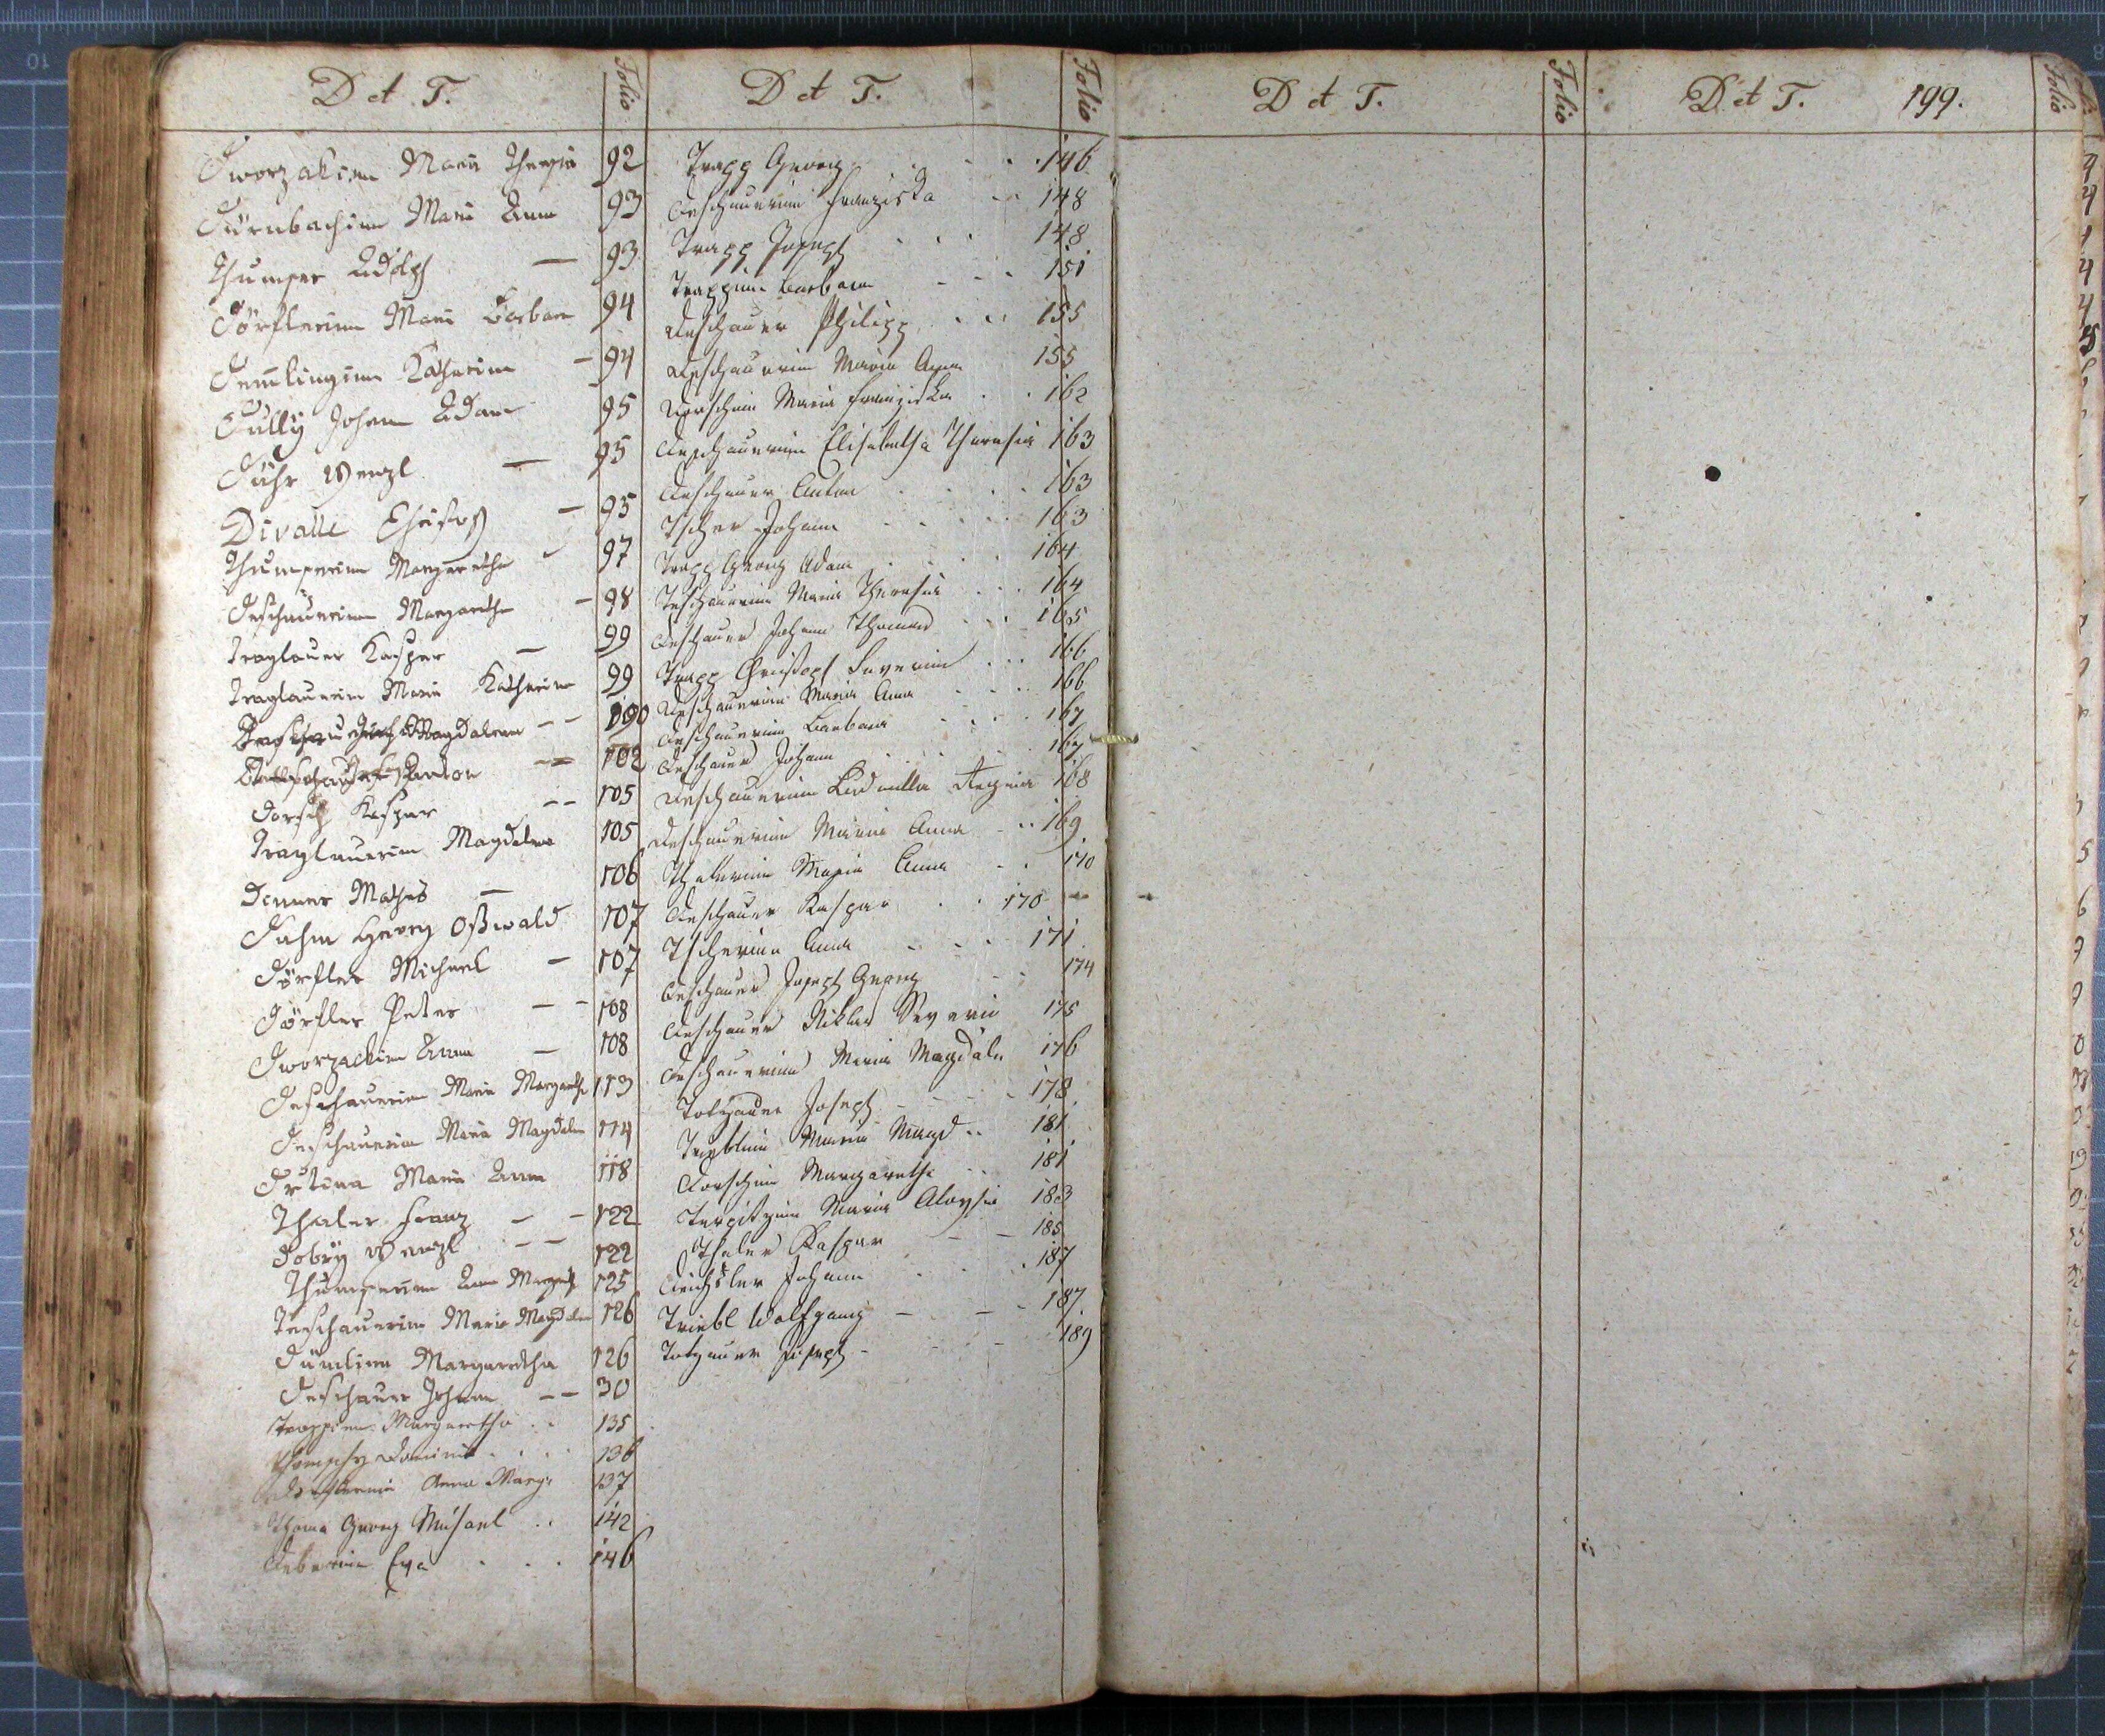 D et T.
Folio
Dworzakinn Maria Theresia 92
Dürnbachinn Maria Anna 93
Thumser Adolph 93
Dörflerinn Maria Barbara 94
Katharina 94
Dully Johann Adam 95
Dühr Wenzl 95
Divalle Christoph 95
Thumserinn Margaretha 97
Deschauerinn Margaretha 98
Traglauer Kaspar 99
Traglauerin Maria Katharina 99
Magdalena 100
Anton 102
Dorsch Kaspar 105
Traglauerinn Magdalena 105
Denner Mathes 106
Duhm Georg Oßwald 107
Dörfler Michael 107
Dörfler Peter 108
Dworzackinn Anna 108
Deschauerinn Maria Margareth 113
Deschauerinn Maria Magdalena 114
Maria Anna 118
Thaler Franz 122
Dobry Wenzl 122
Thumserinn Anna Margareth 125
Teschauerinn Maria Magdalena 126
Dümlinn Margaretha 126
Deschauer Johann 30
Trappinn Margaretha 135
136
Anna Marg. 137
Thoma Georg Michael 142
Eva 146
D et T.
Folio
Trapp Georg 146
Deschauerinn Franziska 148
Trapp Joseph 148
Trappinn Barbara 151
Deschauer Philipp 155
Deschauerinn Maria Anna 155
Dorschinn Maria Franziska 162
Deschauerinn Elisabetha Theresia 163
Deschauer Anton 163
Tscher Johann 163
Trapp Georg Adam 164
Teschauerinn Maria Theresia 164
Deschauer Johann Thomas 165
Trapp Christoph Severin 166
Deschauerinn Maria Anna 166
Deschauerinn Barbara 167
Deschauer Johann 167
Deschauerinn Ludmilla Regina 168
Deschauerinn Maria Anna 169
Thalerinn Maria Anna 170
Deschauer Kaspar 170
Tscherinn Anna 171
Deschauer Joseph Georg 174
Deschauer Niklas Severin 175
Deschauerinn Maria Magdalen 176
Totzauer Joseph 178
Trieblinn Maria Magd. 181
Dorschinn Margaretha 181
Maria Aloysia 183
Thaler Kaspar 185
Deichsler Johann 187
Triebl Wolfgang 187
Totzauer Joseph 189
D et T.
Folio
D et T. 199.
Folio